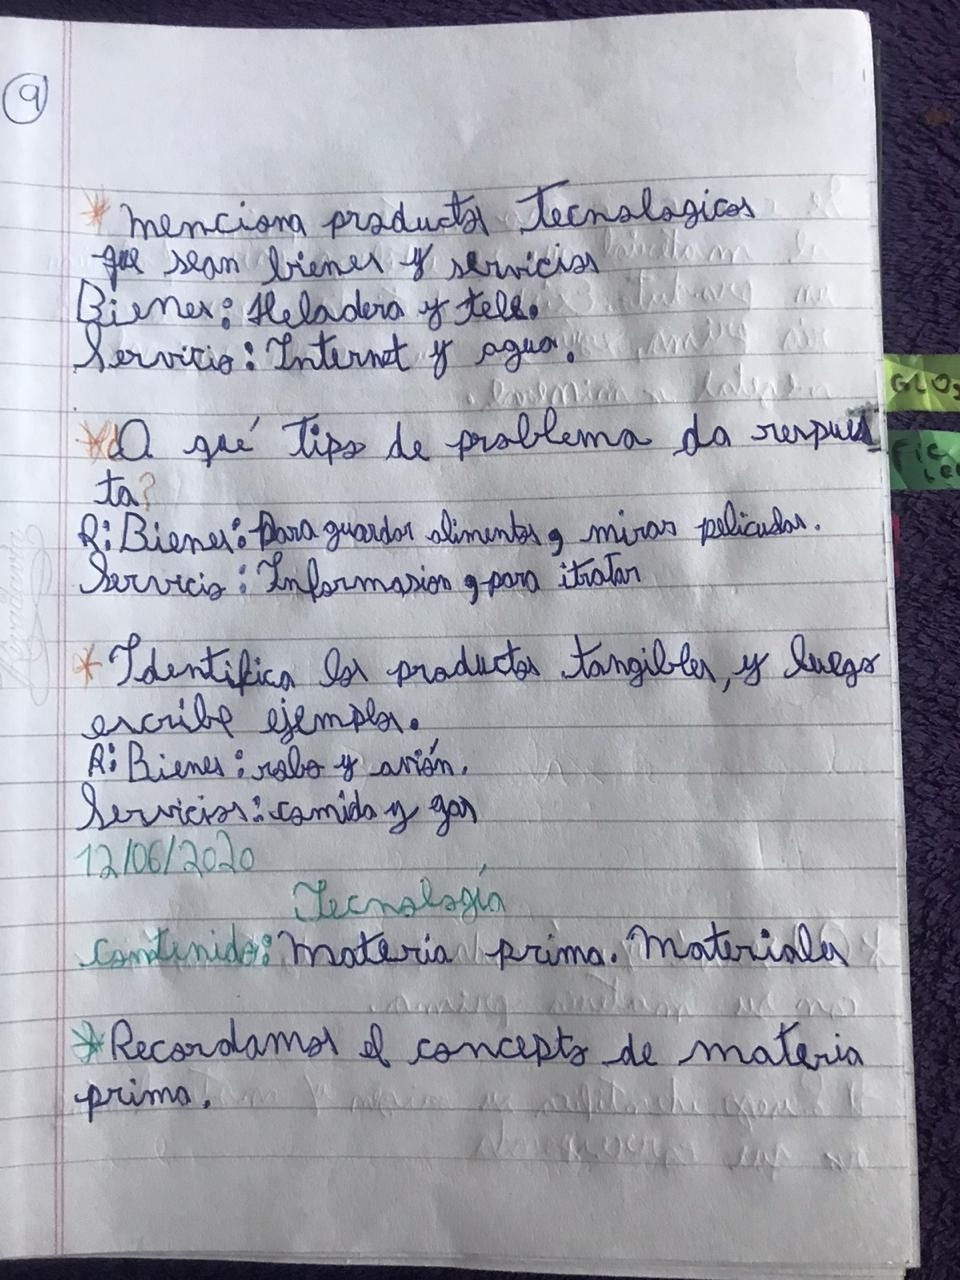 9
* Menciona productos Tecnologicos
que sean bienes y servicios
Bienes: Heladera y tele.
Servicio: Internet y agua.
* ¿A qué tipo de problema da respues
ta?
R: Bienes: Para guardar alimentos y mirar peliculas.
Servicio: Informasion y para
* Identifica los productos tangibles, y luego
escribe ejemplos.
R: Bienes: robo y avión.
Servicios: comida y gas
12/06/2020
Tecnología
Contenido: Materia prima. Materiales
* Recordamos el concepto de materia
prima.
GLOS